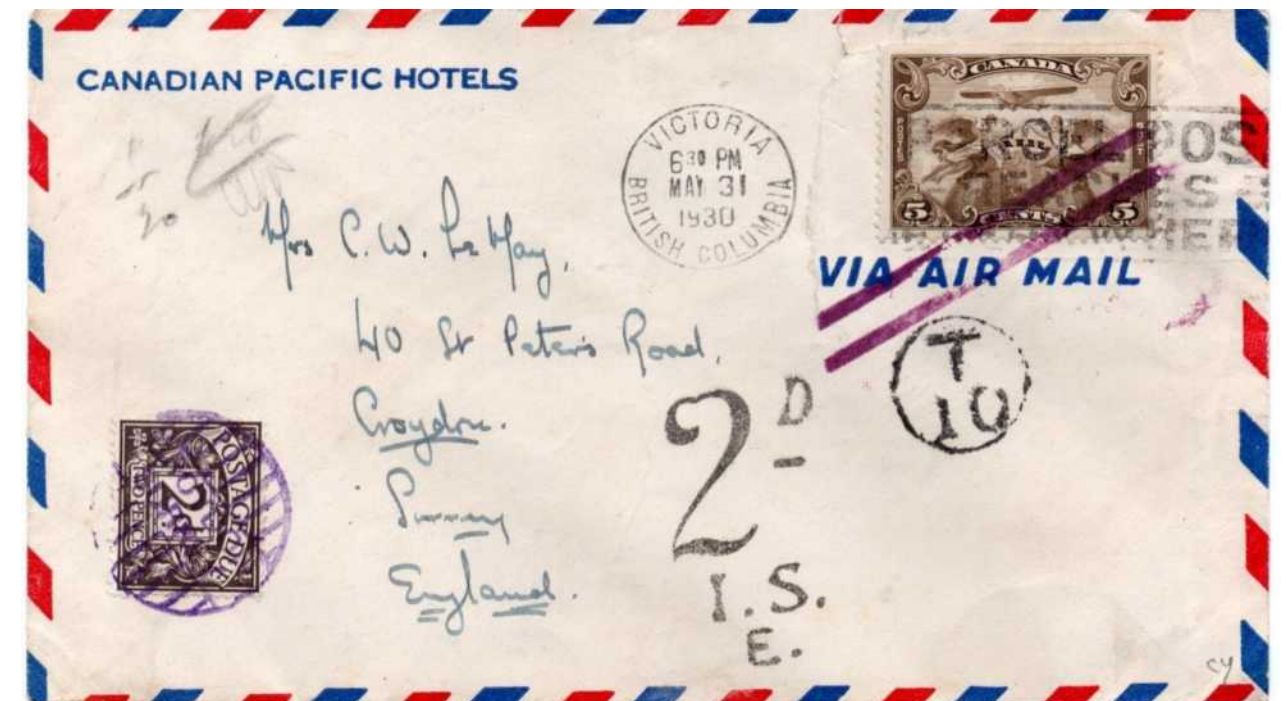 CANADIAN PACIFIC HOTELS
VICTORIA
6 30 PM
MAY 31
1930
BRITISH COLUMBIA
CANADA
5 CENTS 5
VIA AIR MAIL
Mrs C. W. Le May,
40 St Peter's Road,
Croydon.
Surrey
England.
T
10
2 D
I. S.
E.
POSTAGE DUE
2d
TWO PENCE
20
cy